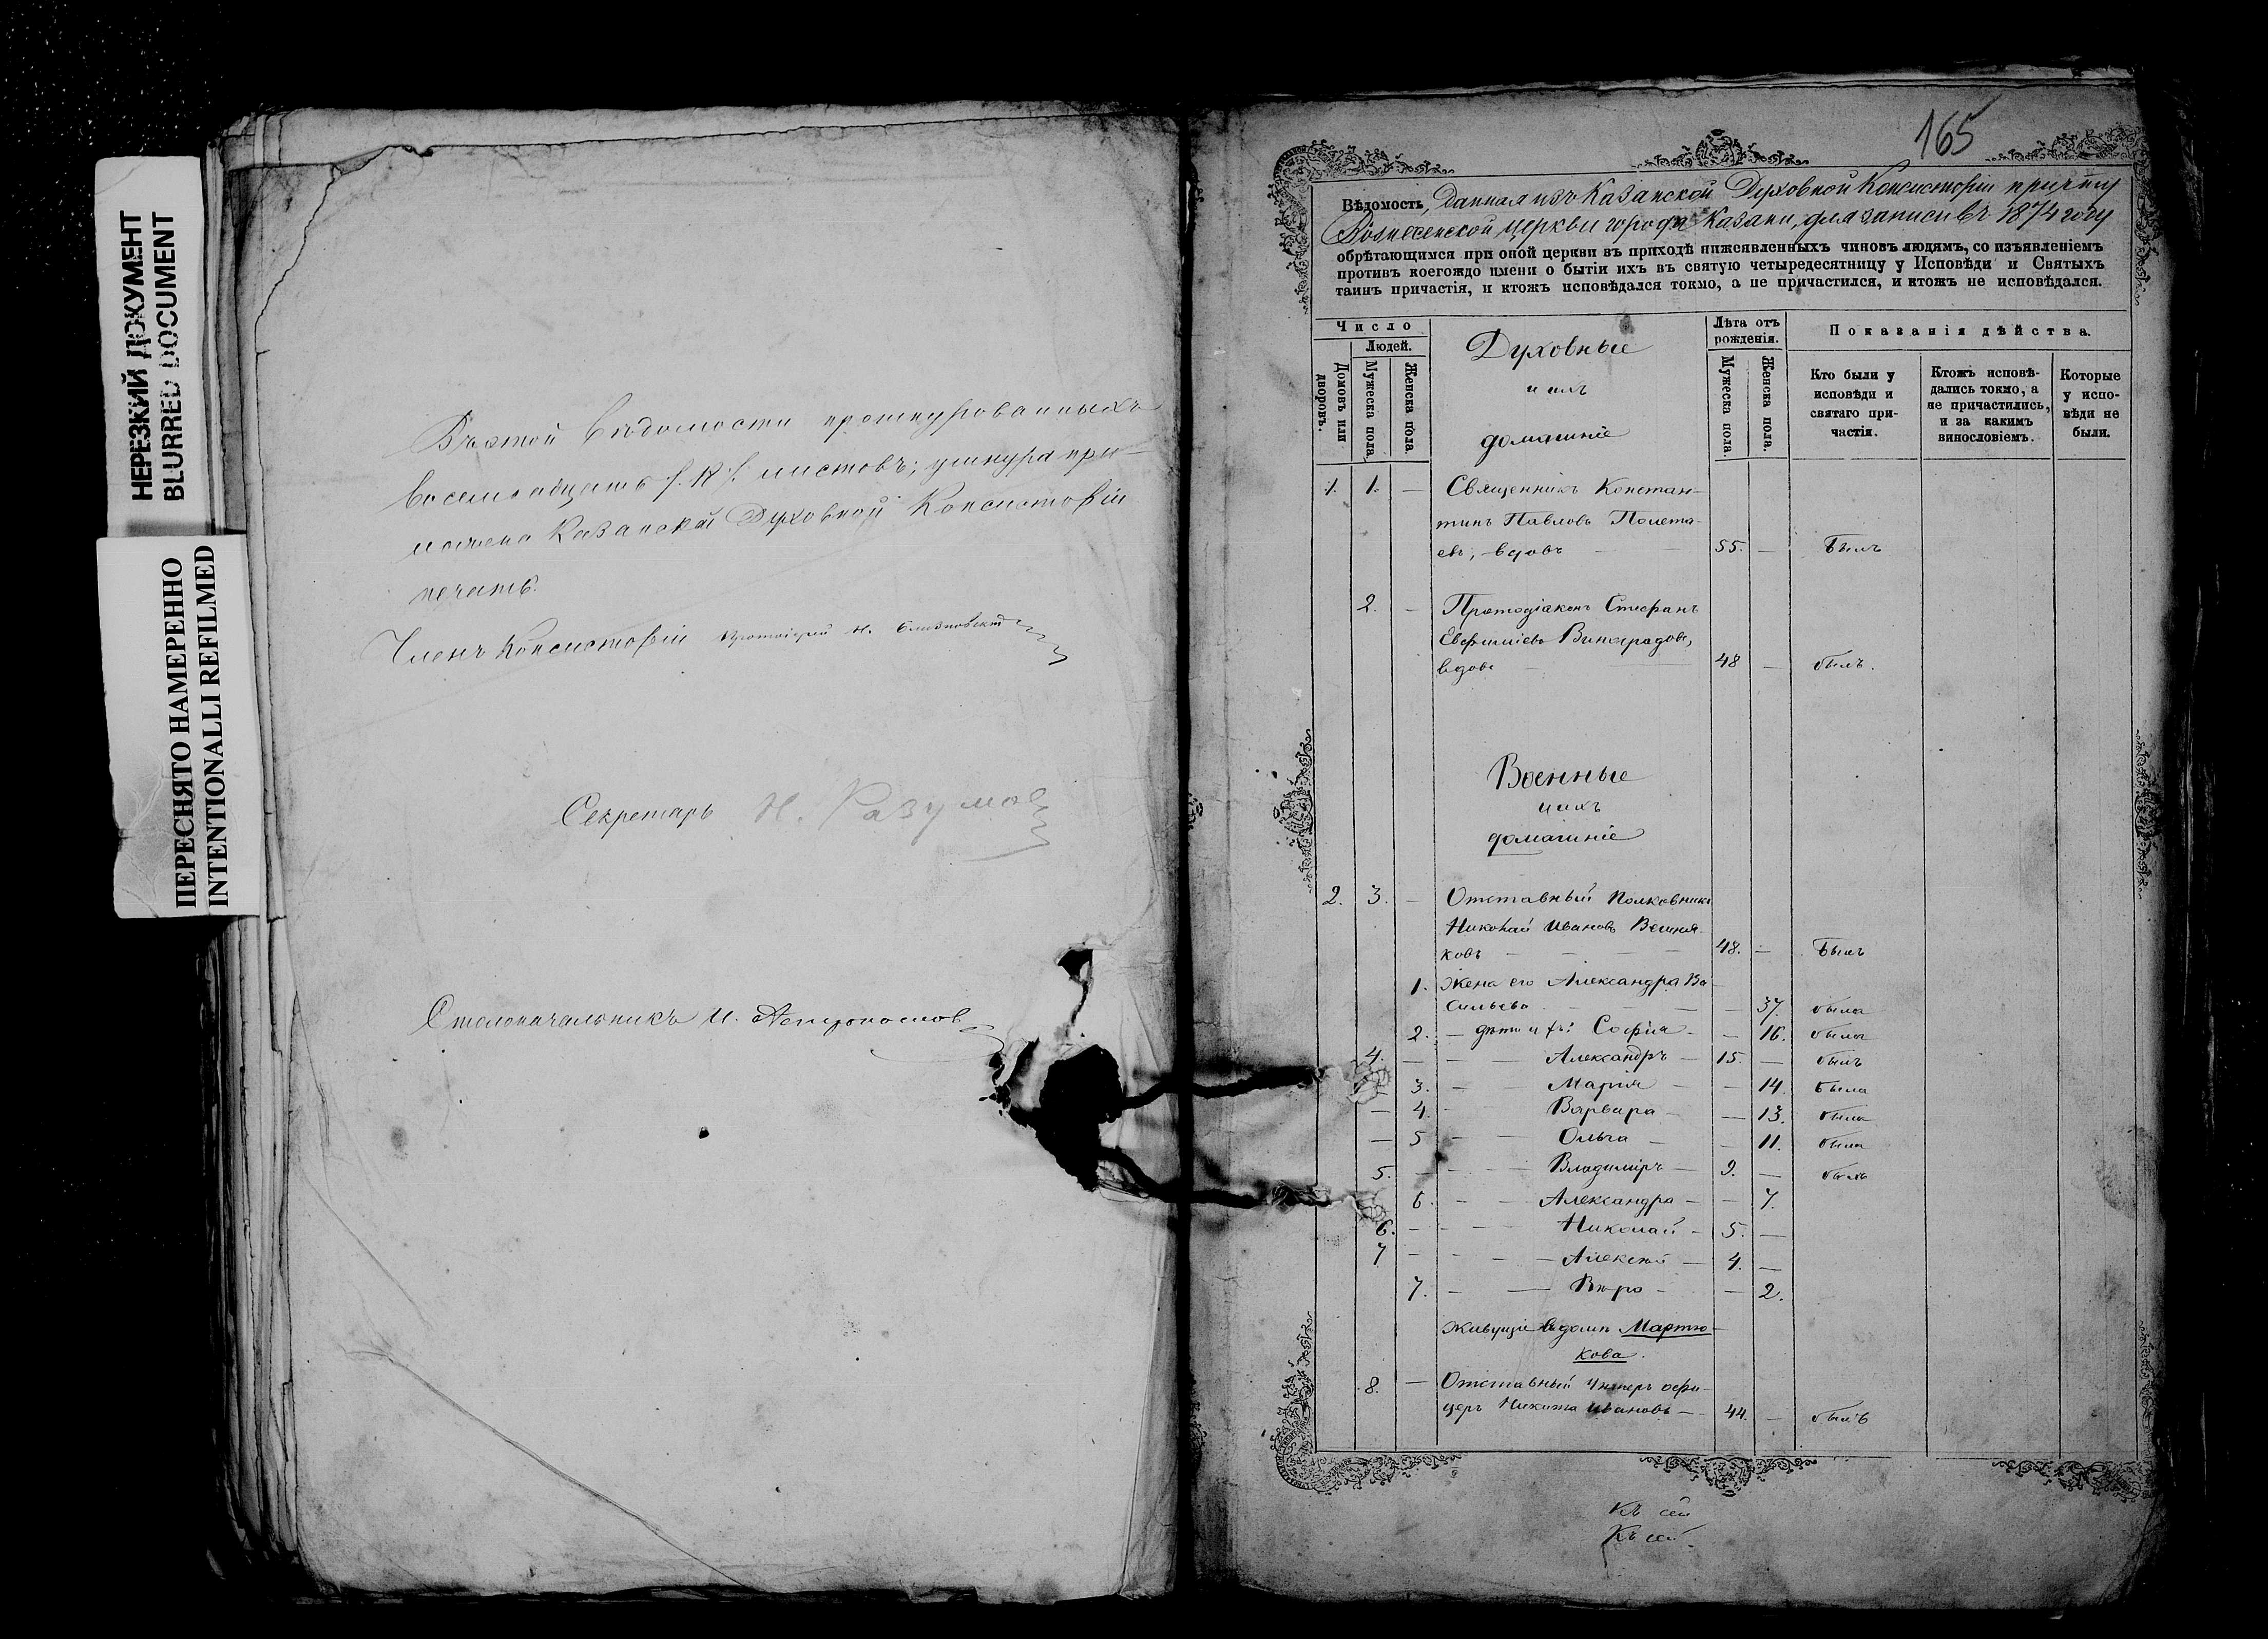 НЕРЕЗКИЙ ДОКУМЕНТ
BLURRED DOCUMENT
ПЕРЕСНЯТО НАМЕРЕННО
INTENTIONALLI REFILMED
Въ этой вѣдомости прошнурованныхъ
восемнадцать /:18:/ листовъ; у шнура при-
ложена Казанской Духовной Консисторіи
печать.
Членъ Консисторіи Протоіерей
Секретарь Н. Разумов
Столоначальникъ И.
165
Вѣдомость, данная изъ Казанской Духовной Консисторіи причту
Вознесенской церкви города Казани, для записи въ 1874 году
обрѣтающимся при оной церкви въ приходѣ нижеявленныхъ чиновъ людямъ, со изъявленіемъ
противъ коегождо имени о бытіи ихъ въ святую четыредесятницу у Исповѣди и Святыхъ
таинъ причастія, и ктожъ исповѣдался токмо, а не причастился, и ктожъ не исповѣдался.
Число
Людей.
Домовъ или дворовъ.
Мужеска пола
Женска пола
Духовные
и ихъ
домашніе
Лѣта отъ рожденія.
Мужеска пола.
Женска пола.
Показанія дѣйства.
Кто были у исповѣди и святаго при-частія.
Ктожъ исповѣ-дались токмо, а не причастились, и за какимъ винословіемъ.
Которые у испо-вѣди не были.
1. 1. — Священникъ Констан-
тинъ Павловъ Полета-
евъ, вдовъ — 55. — Былъ
2. — Протодіаконъ Стефанъ
Евфиміевъ Виноградовъ,
вдовъ — 48 — былъ.
Военные
и ихъ
домашніе
2. 3. — Отставный Полковникъ
Николай Ивановъ Вешня-
ковъ — 48. — Былъ
1. Жена его Александра Ва
сильева — 37. была
2. — дѣти ихъ: Софія — — 16. была
4. — — Александръ — 15. — былъ
3. — Марія — — 14. была
— 4. — Варвара — — 13. была
— 5 — — Ольга — — 11. была
5. — — — Владиміръ — 9. — былъ
6. — — Александра — — 7.
6. — — — Николай — 5. —
7 — — — Алексей — 4. —
7. — — Вѣра — — 2.
Живущіе въ домѣ Мартю-
кова.
8. — Отставный Унтеръ офи-
церъ Никита Ивановъ — 44. — былъ
Къ сей
Къ сей